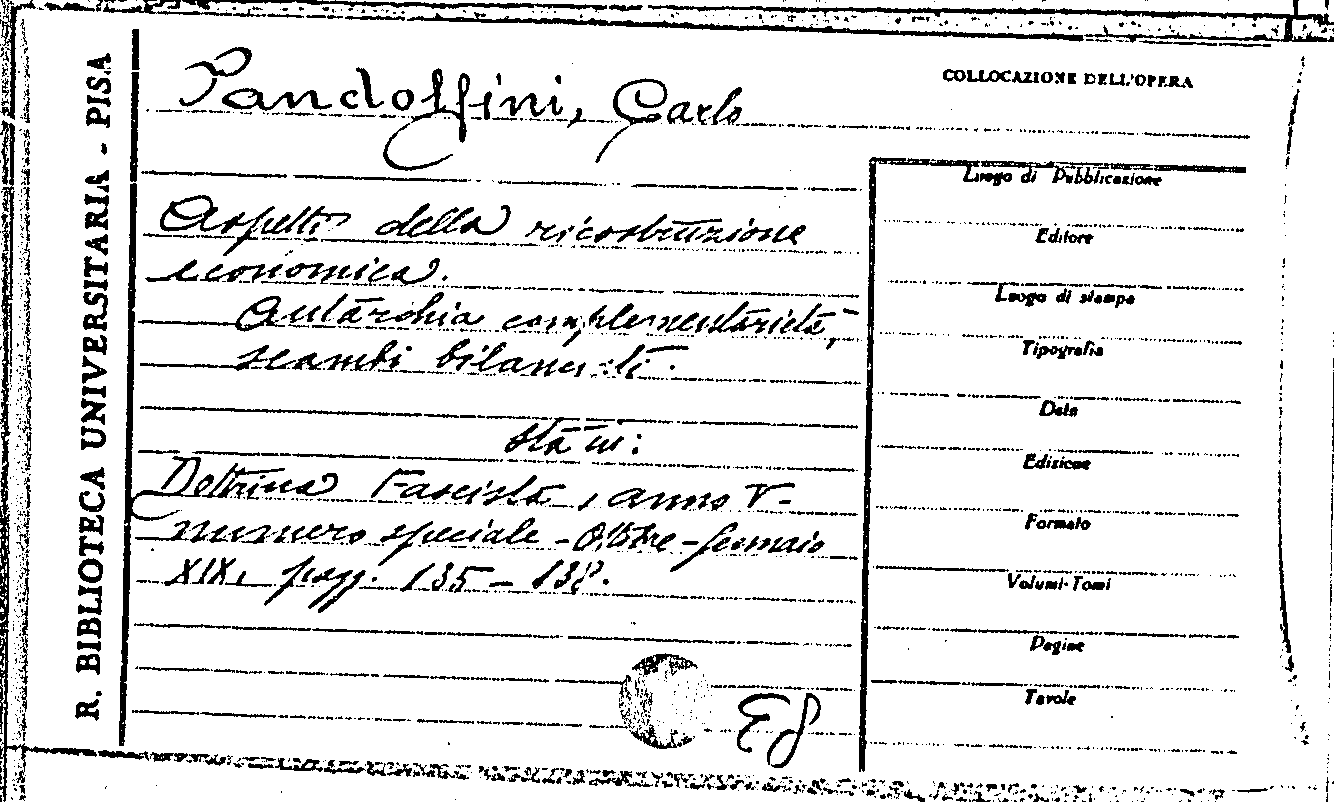 R. BIBLIOTECA UNIVERSITARIA - PISA
Pandolfini, Carlo
COLLOCAZIONE DELL'OPERA
Aspetti della ricostruzione
economica.
Autarchia complementarietà,
scambi
Sta in:
Dottrina Fascista, anno V-
numero speciale - Ottobre - Gennaio
XIX, pagg. 135-138.
E8
Luogo di Pubblicazione
Editore
Luogo di stampa
Tipografia
Data
Edizione
Formato
Volumi-Tomi
Pagine
Tavole